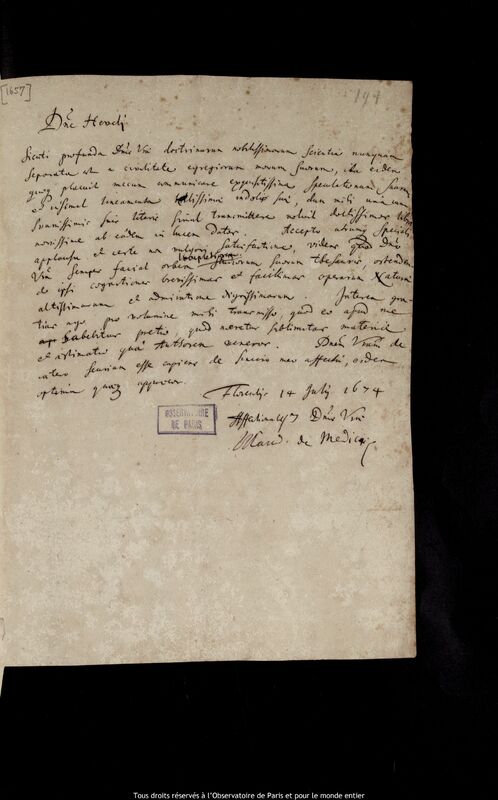 [1657]
194
Dne Heveli
Sicuti profunda Dnis Vrae doctrinarum nobilissimarum scientia nunquam
separata est a civilitate egregiorum morum suorum, ita eidem
quoq placuit mecum communicare exquisitissima speculationum suarum
et insimul lineamenta indolis suae, dum mihi una cum
suavissimis suis literis simul transmittere voluit doctissimas
novissime ab eodem in lucem datas. Accepto utrumq speciali
applausu et certe non vulgari satisfactione, videns quod Dnio
Vra semper faciat orbem suorum thesauros ostendens
de ipsi cognitiones brevissimas et facilimas operum Naturae
altissimarum et admiratione dignissimarum. Interea gra-
tias ago pro volumine mihi transmisso, quod eo apud me
habebitur pretio, quod meretur sublimitas materiae
et aestimatio qua Authorem veneror. Dnem Vram de
cetero securam esse cupiens de sincero meo affectu, eidem
optima quaeq apprecor.
Florentiae 14 Julij 1674
Affectionatiss Dnis Vrae
Card. de Medicis
OBSERVATOIRE
DE PARIS
Tous droits réservés à l'Observatoire de Paris et pour le monde entier